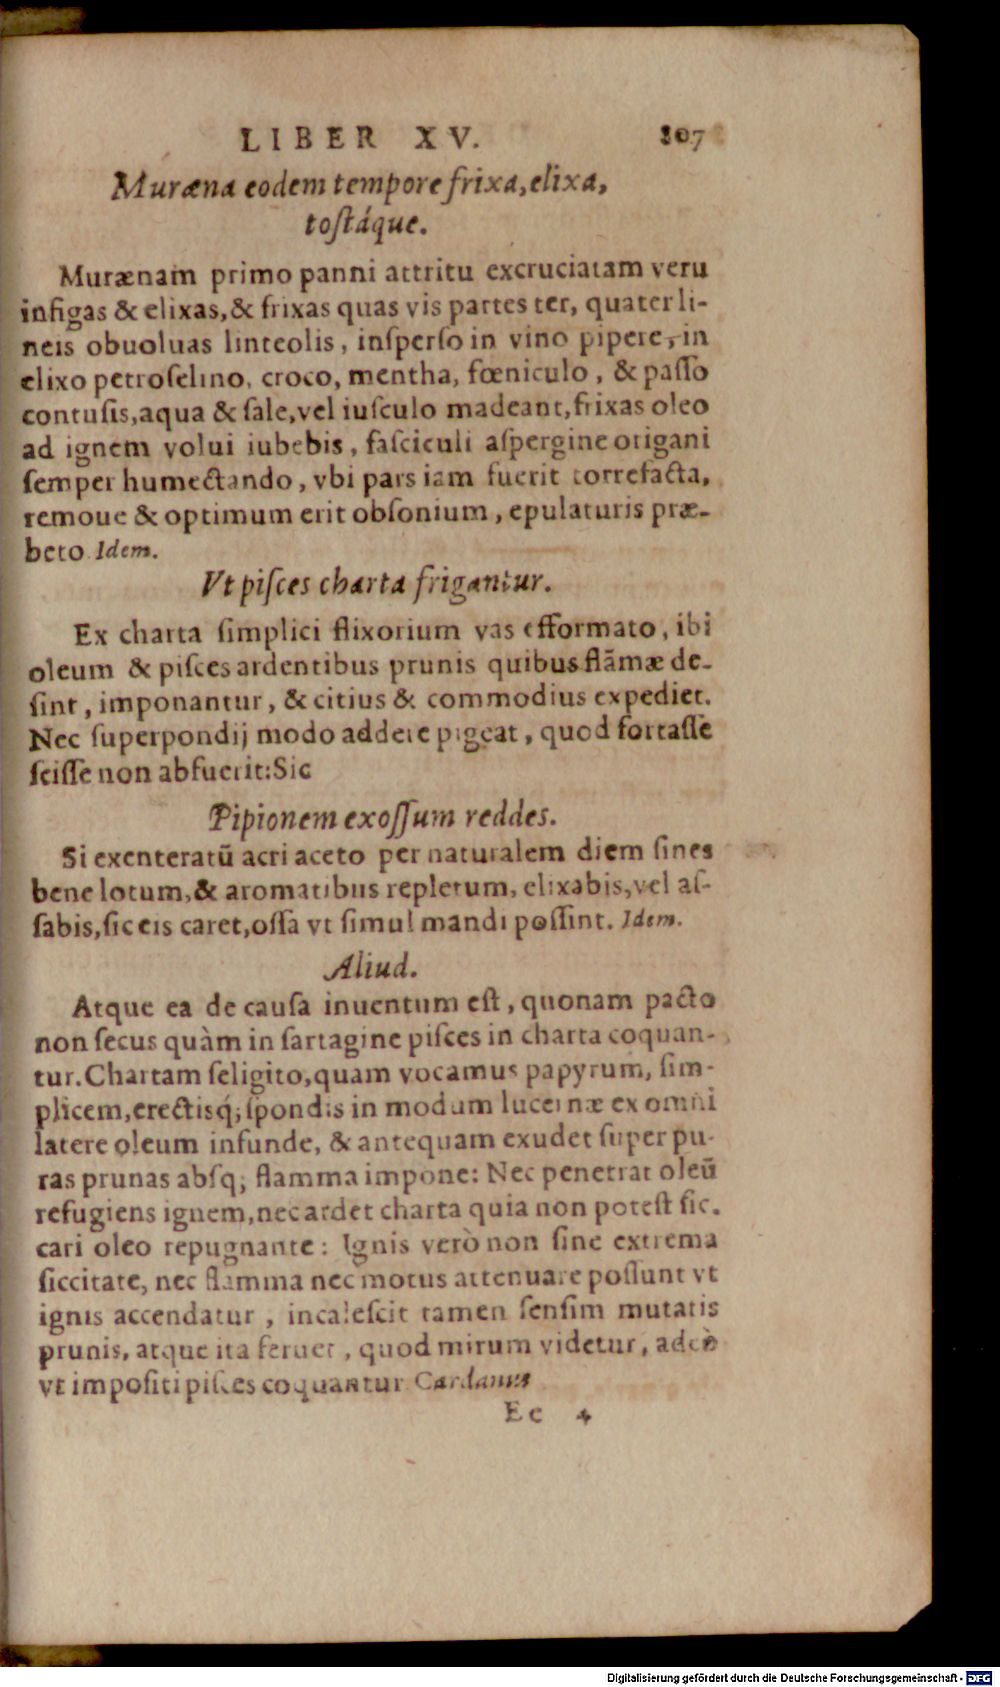 LIBER XV. 807
Muræna eodem tempore frixa, elixa,
toſtáque.
Murænam primo panni attritu excruciatam veru
infigas & elixas, & frixas quas vis partes ter, quater li-
neis obuoluas linteolis, inſperſo in vino pipere, in
elixo petroſelino, croco, mentha, fœniculo, & paſſo
contuſis, aqua & ſale, vel iuſculo madeant, frixas oleo
ad ignem volui iubebis, faſciculi aſpergine origani
ſemper humectando, vbi pars iam fuerit torrefacta,
remoue & optimum erit obſonium, epulaturis præ-
beto Idem.
Vt piſces charta frigantur.
Ex charta ſimplici flixorium vas efformato, ibi
oleum & piſces ardentibus prunis quibus flãmæ de-
ſint, imponantur, & citius & commodius expediet.
Nec ſuperpondij modo addere pigeat, quod fortaſſe
ſciſſe non abfuerit: Sic
Pipionem exoſſum reddes.
Si exenteratũ acri aceto per naturalem diem ſines
bene lotum, & aromatibus repletum, elixabis, vel aſ-
ſabis, ſic eis caret, oſſa vt ſimul mandi poſſint. Idem.
Aliud.
Atque ea de cauſa inuentum eſt, quonam pacto
non ſecus quàm in ſartagine piſces in charta coquan-
tur. Chartam ſeligito, quam vocamus papyrum, ſim-
plicem, erectisq́; ſpondis in modum lucernæ ex omni
latere oleum infunde, & antequam exudet ſuper pu-
ras prunas absq; flamma impone: Nec penetrat oleũ
refugiens ignem, nec ardet charta quia non poteſt ſic-
cari oleo repugnante: Ignis verò non ſine extrema
ſiccitate, nec flamma nec motus attenuare poſſunt vt
ignis accendatur, incaleſcit tamen ſenſim mutatis
prunis, atque ita feruet, quod mirum videtur, adeò
vt impoſiti piſces coquantur Cardanus
Ee 4
Digitalisierung gefördert durch die Deutsche Forschungsgemeinschaft - DFG